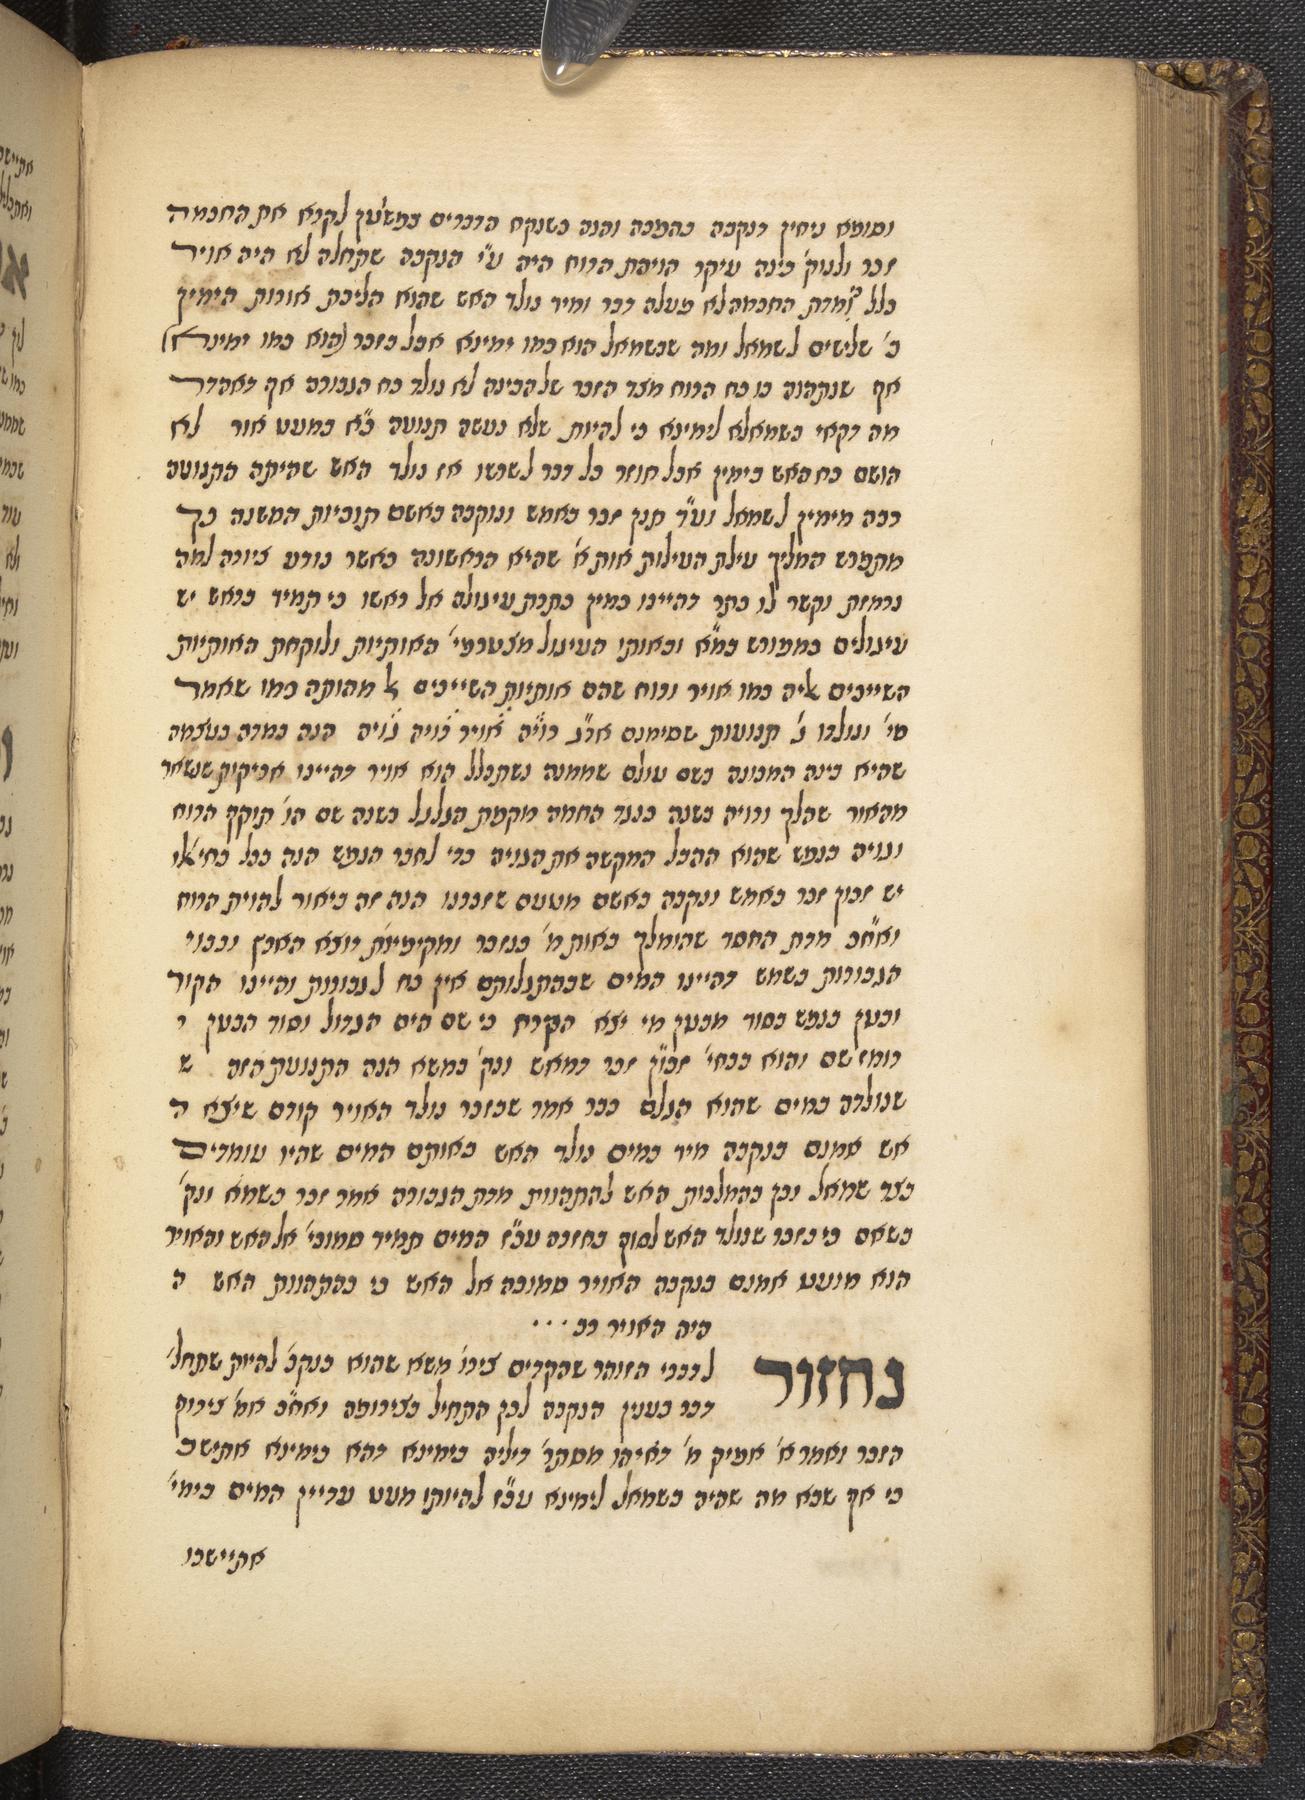 וסומא ניחין דנקבה בהמכה והנה כשנקח הדברים כמשען לקרא את החכמה
זכר ולנוק׳ בינה עיקר הויית הרוח היה ע״י הנקבה שתחלה לא היה אויר
כלל מדת החכמה לא פעלה דבר ומיד נולד האש שהוא הליכת אורות הימין
ב׳ שלישים לשמאל ומה שבשמאל הוא כמו ימינא אבל בזכר (הוא כמו ימינא)
אף שנתהוה בו כח הרוח מצד הזכר של הבינה לא נולד כח הגבורה אף דאהדר
מה דקאי בשמאלא לימינא כי להיות שלא נעשה תנועה כ״א במעט אור לא
הושם כח האש בימין אבל חוזר כל דבר לשרשו אז נולד האש שהיתה התנועה
רבה מימין לשמאל וע״ד תנן זכר באמש ונוקבה באשם תוכיות המשנה כך
מתפרש המליך עילת העילות אות א׳ שהיא הראשונה כאשר נודע צורה למה
נרמזת וקשר לו כתר דהיינו כמין כתרת עיגולם אל ראשו כי תמיד בראש יש
עיגולים כמפורש במ״א ובאותו העיגול מצטרפי׳ האותיות ולוקחת האותיות
השייכים אליה כמו אויר ורוח שהם אותיות השייכים מהותה כמו שאמר
סי׳ ונולדו ג׳ תנועות שסימנם אר״ג רו״יה אויר רויה גויה הנה במדה בעצמה
שהיא בינה המכונה בשם עולם שממנה נשתכלל הוא אויר דהיינו אביקות שנשאר
מהאור שהלך ורויה בשנה כנגד החמה מקפת הגלגל בשנה שם הו׳ תוקף הרוח
וגויה בנפש שהוא ההבל המקשה את הגויה כדי לחבר הנפש הנה בכל בחי׳ אלו
יש זכון זכר באמש ונקבה באשם מטעם שזכרנו הנה זה ביאור להוית הרוח
ואח״כ מדת החסד שהומלך באות מ׳ כנזכר ומקימיות יוצא הארץ ובכור
הגבורות בשמש דהיינו המים שבהתגלותם אין כח לגבורות והיינו הקור
ובטן בנפש בסוד מבטן מי יצא הקרח כי שם הים הגדול וסוד הבטן י
רומז שם והוא בבחי׳ זכו״ן זכר דמאש ונק׳ במשא הנה התנועת הזה ש
שנולדה במים שהוא הגלם כבר אמר שבזכר נולד האויר קודם שיצא ה
אש אמנם בנקבה מיד במים נולד האש באותם המים שהיו עומדים
בצד שמאל ובכן בהמלכות האש להתהוות מדת הגבורה אמר זכר בשמא ונק׳
בשאם כי בזכר שנולד האש לסוף בחזרה עכ״ז המים תמיד סמוכי׳ אל האש והאויר
הוא מועט אמנם בנקבה האויר סמוכה אל האש כי בהתהוות האש ה
היה האויר רב ...
נחזור לדברי הזוהר שהקדים צירו׳ משא שהוא בנקב׳ להיות שתחל׳
דבר בענין הנקבה לכן התחיל בצירופה ואח״כ אמ׳ צירוף
הזכר ואמר א׳ אפיק מ׳ דאיהו מסתר׳ דיליה בימינא דהא בימינא אתישב
כי אף שבא מה שהיה בשמאל לימינא עכ״ז להיותו מעט עדיין המים בימי׳
אתיישבו